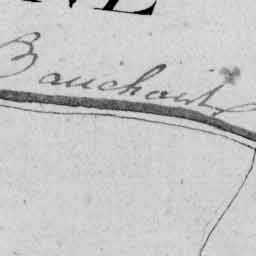 NE
Bauchaud